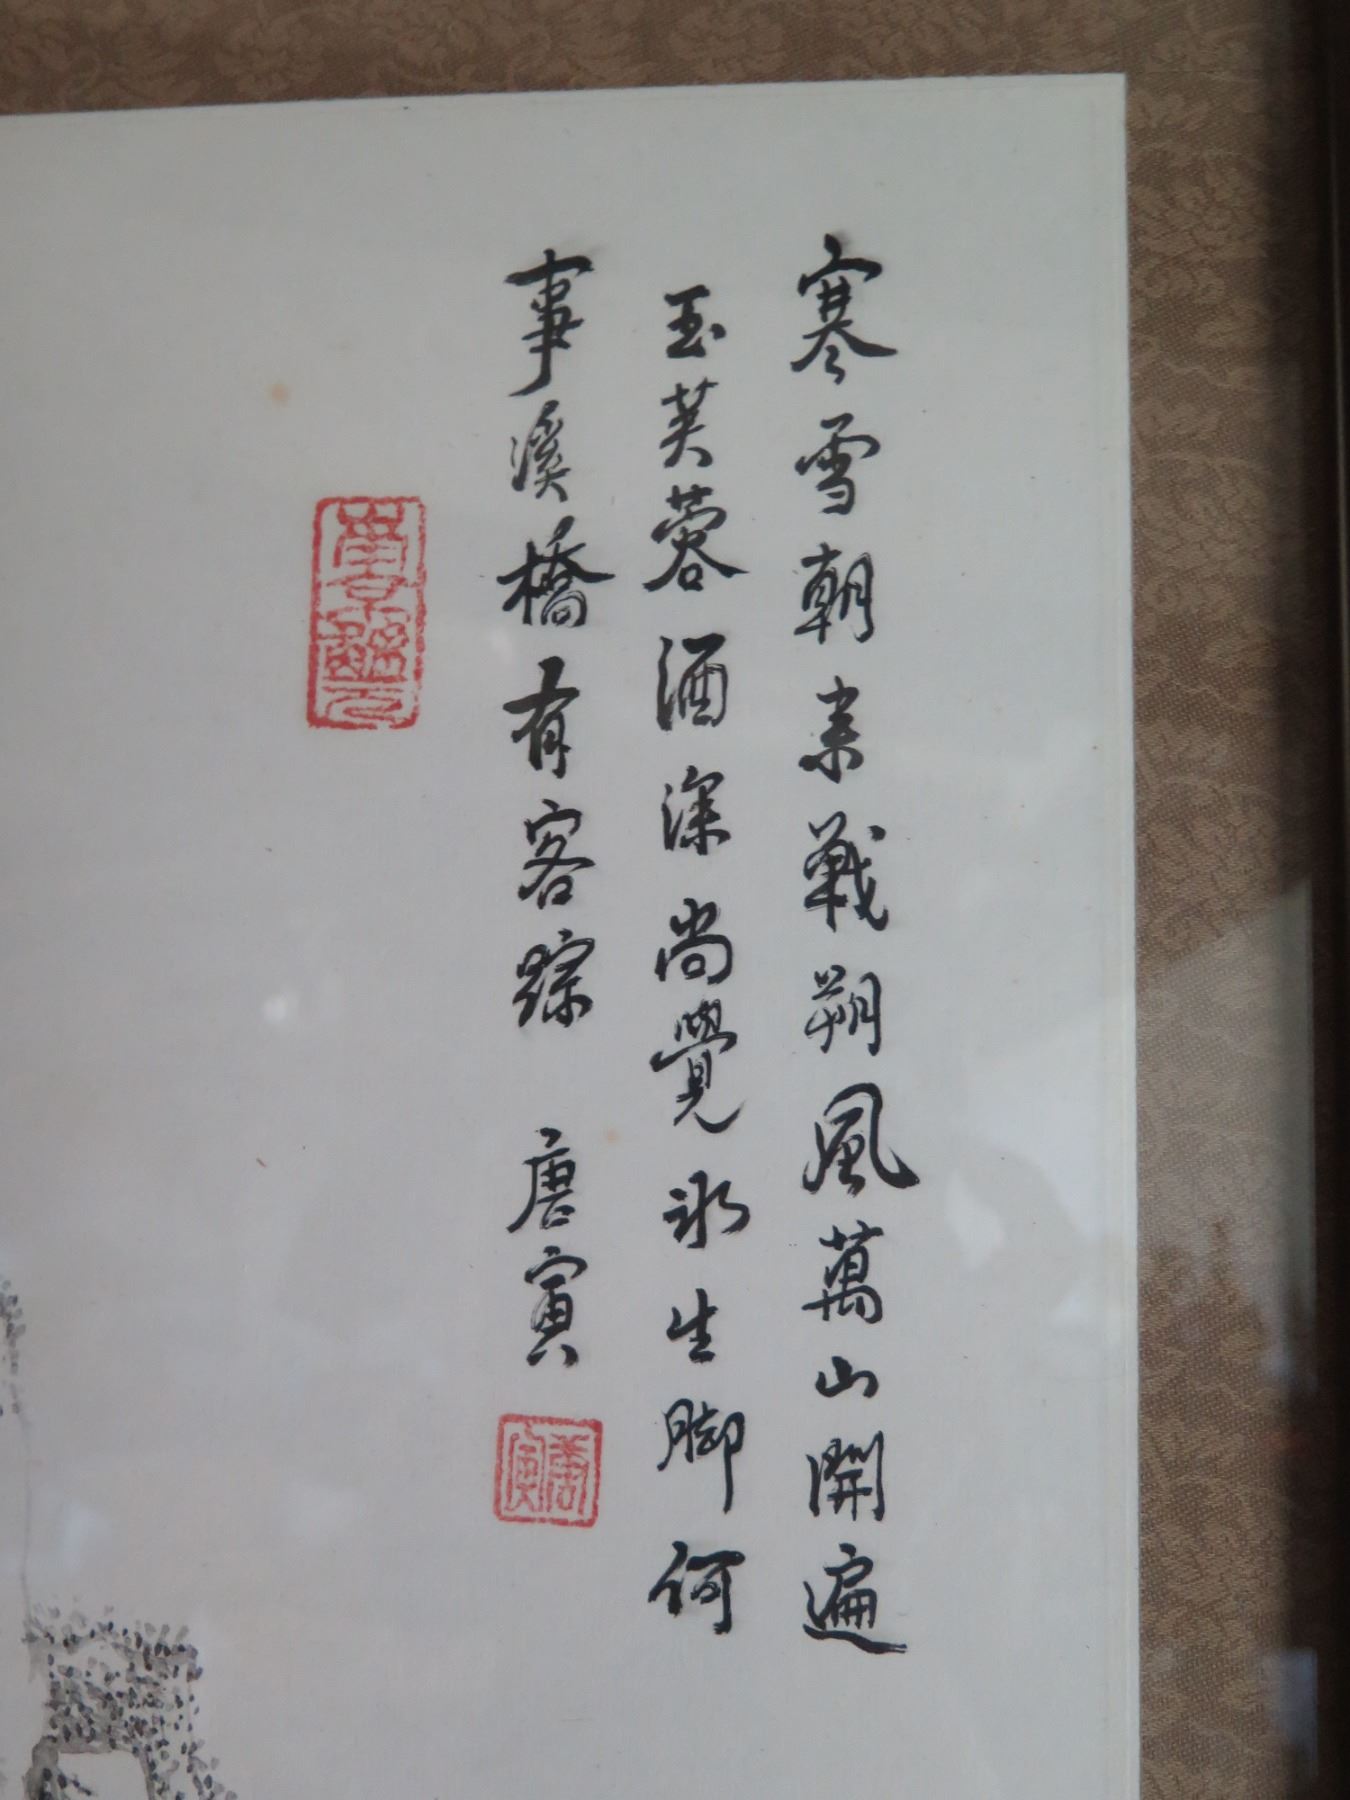 寒雪朝来戰朔風萬山開遍
玉芙蓉酒深尚覺冰生脚何
事溪橋有客踪 唐寅
唐寅